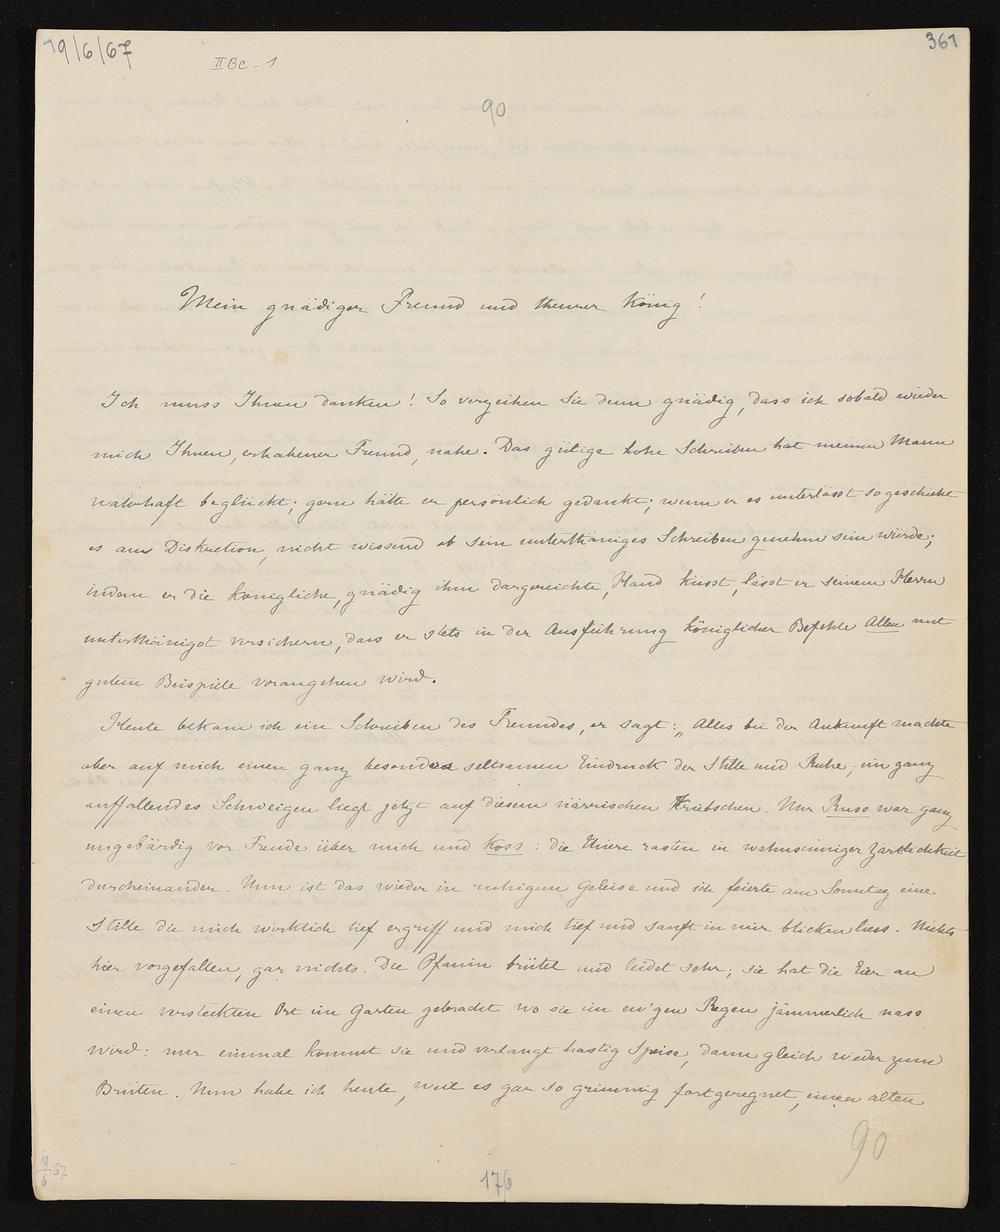 19/6/67
361
II Bc - 1
90
Mein gnädiger Freund und theurer König!
Ich muss Ihnen danken! So verzeihen Sie denn gnädig, dass ich sobald wieder
mich Ihnen, erhabener Freund, nahe. Das gütige hohe Schreiben hat meinen Mann
wahrhaft beglückt; gern hätte er persönlich gedankt; wenn er es unterlässt so geschieht
es aus Diskretion, nicht wissend ob sein unterthäniges Schreiben genehm sein würde;
indem er die königliche, gnädig ihm dargereichte, Hand küsst, lässt er seinem Herrn
unterthänigst versichern, dass er stets in der Ausführung königlicher Befehle Allen mit
gutem Beispiele vorangehen wird.
Heute bekam ich ein Schreiben des Freundes, er sagt: „Alles bei der Ankunft machte
aber auf mich einen ganz besonders seltsamen Eindruck der Stille und Ruhe; ein ganz
auffallendes Schweigen liegt jetzt auf diesem närrischen Triebschen. Nur Russ war ganz
ungebärdig vor Freude über mich und Koss: die Thiere rasten in wahnsinniger Zärtlichkeit
durcheinander. Nun ist das wieder in ruhigem Geleise und ich feierte am Sonntag eine
Stille die mich wirklich tief ergriff und mich tief und sanft in mir blicken liess. Nichts
hier vorgefallen, gar nichts. Die Pfauin brütet und leidet sehr; sie hat die Eier an
einen versteckten Ort im Garten gebracht wo sie im ew'gen Regen jämmerlich nass
wird: nur einmal kommt sie und verlangt hastig Speise, dann gleich wieder zum
Brüten. Nun habe ich heute, weil es gar so grimmig fortgeregnet, einen alten
90
19/6 67
176